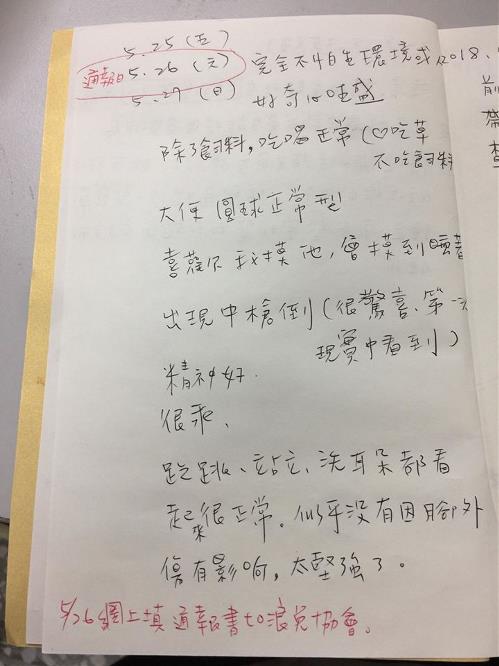 5.25(五)
通報日 5.26(六) 完全不怕生環境或人
5.27(日) 好奇心旺盛
除飼料,吃喝正常(♡吃草
不吃飼料
大便 圓球正常型
喜歡我摸他,會摸到睡著
出現中槍倒(很驚喜、第一次
現實中看到)
精神好.
很乖、
跑跳、站立、洗耳朵都看
起來很正常。似乎沒有因腳外
傷有影响,太堅強了。
5/26網上填通報書to浪兔協會。
2018、
前
帶